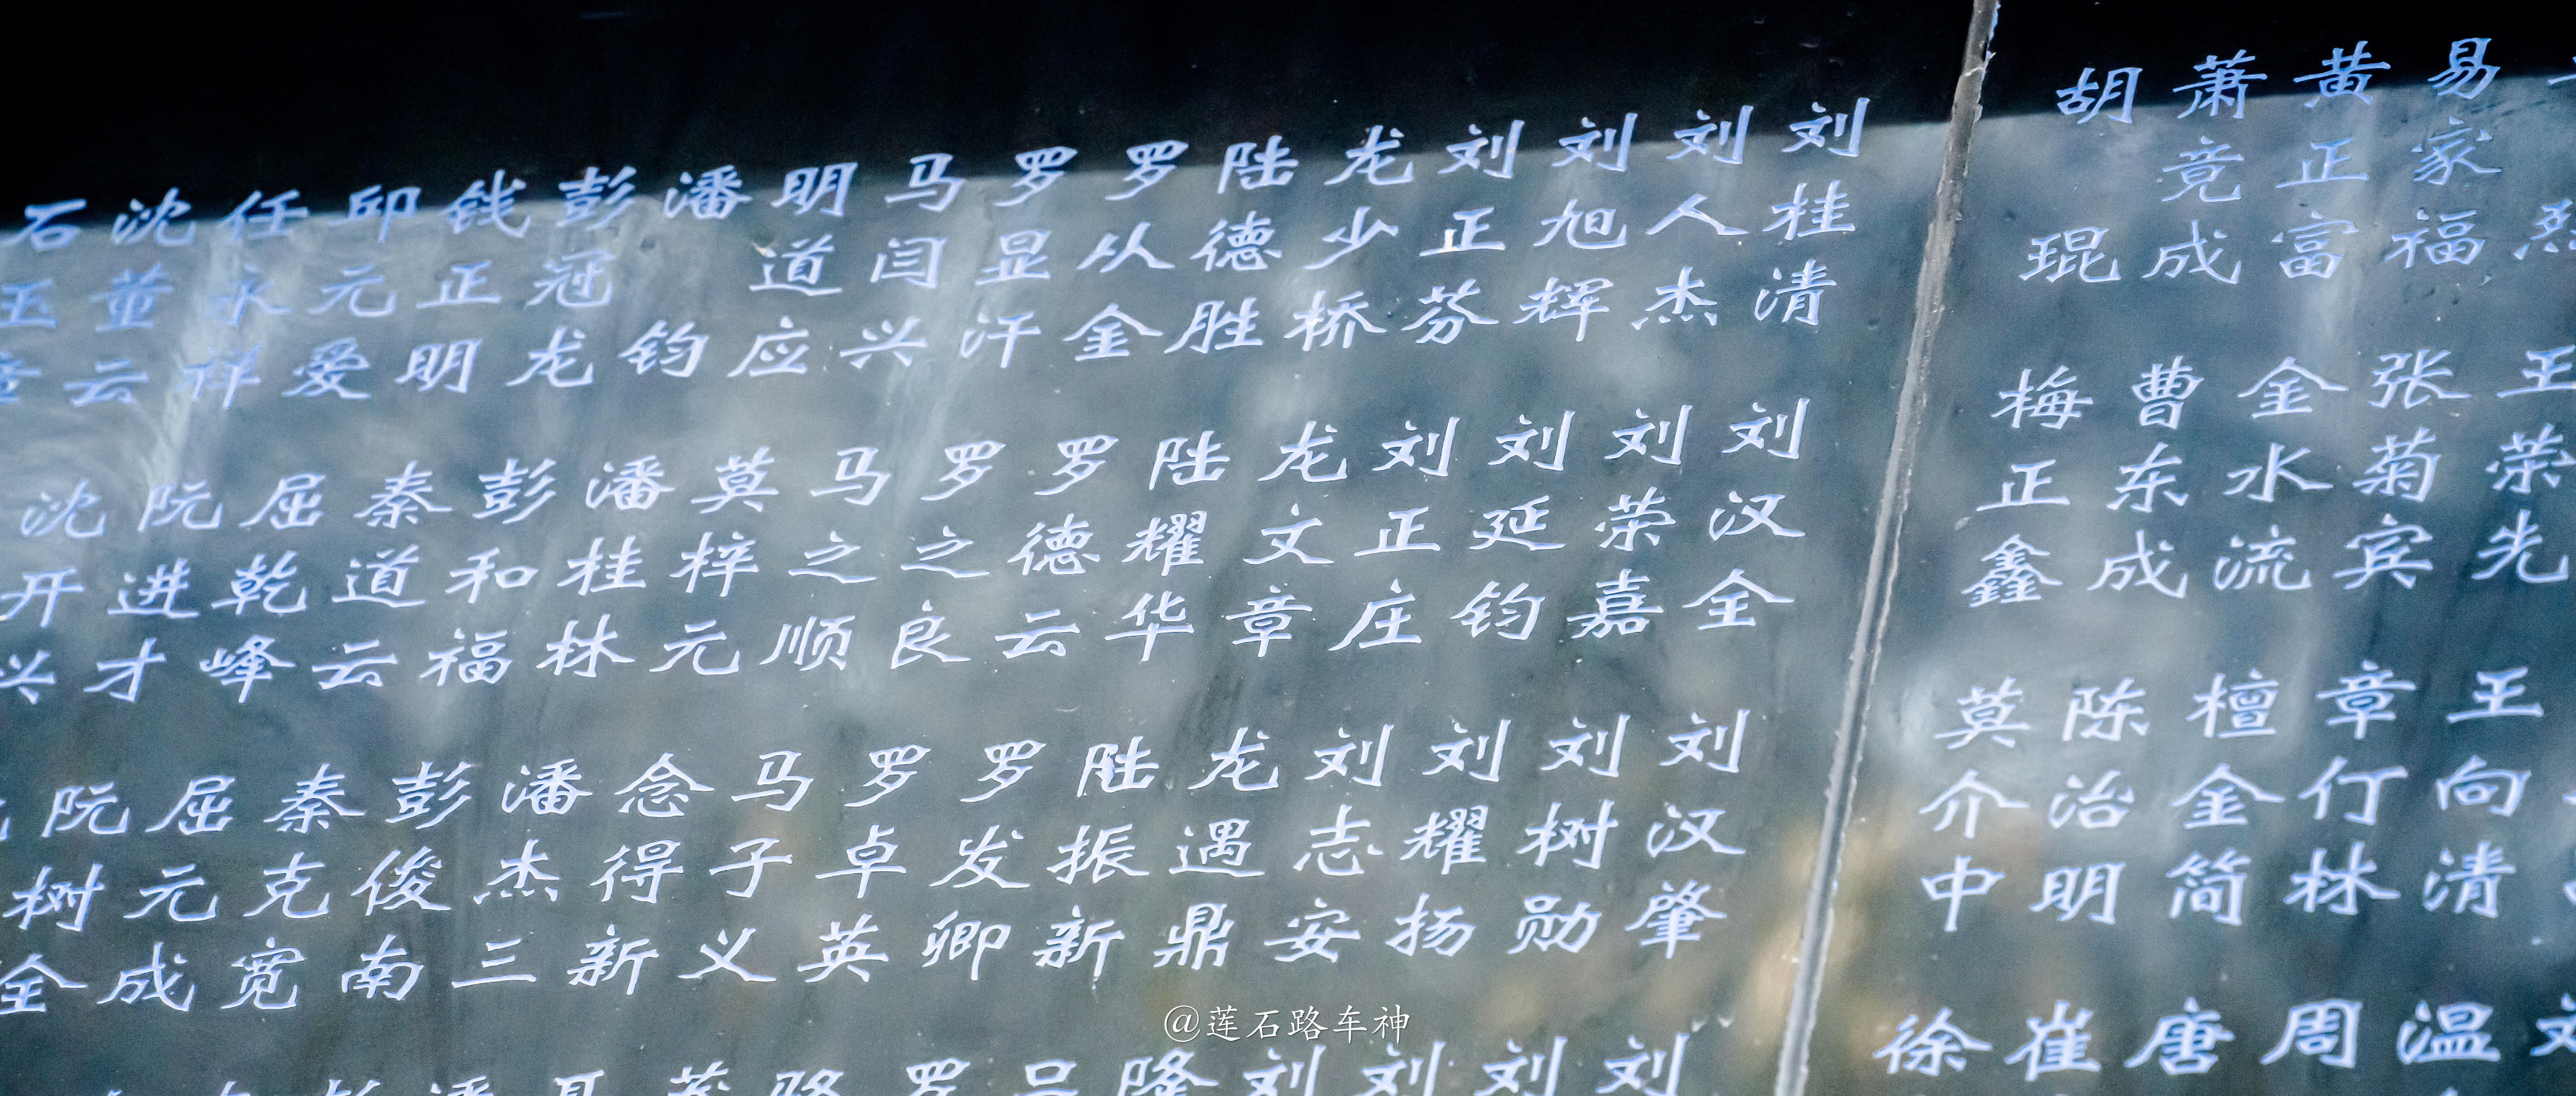 烈
王荣先
王向清
温
易家福
张菊宾
章仃林
周
黄正富
金水流
檀金简
唐
萧竟成
曹东成
陈治明
崔
胡琨
梅正鑫
莫介中
徐
刘桂清
刘汉全
刘汉肇
刘
刘人杰
刘荣嘉
刘树勋
刘
刘旭辉
刘延钧
刘耀扬
刘
刘正芬
刘正庄
刘志安
刘
龙少桥
龙文章
龙遇鼎
隆
陆德胜
陆耀华
陆振新
吕
罗从金
罗德云
罗发卿
罗
罗显汗
罗之良
罗卓英
骆
马闫兴
马之顺
马子义
明道应
莫梓元
念得新
潘钧
潘桂林
潘杰三
潘
彭冠龙
彭和福
彭俊南
钱正明
秦道云
秦克宽
邱元爱
屈乾峰
屈元成
任永祥
阮进才
阮树全
沈董云
沈开兴
石玉章
@莲石路车神